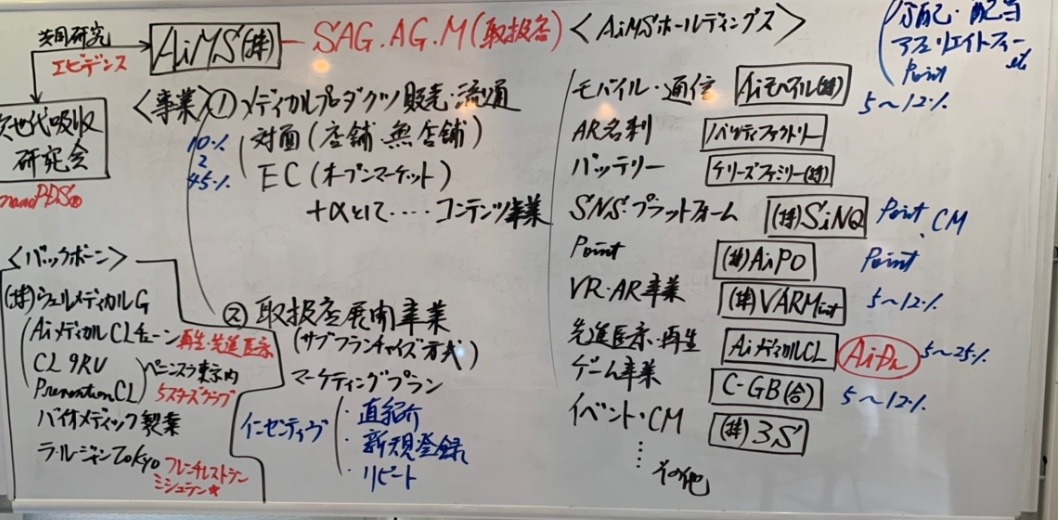 共同研究
エビデンス
AiMS(株) — SAG.AG.M(取扱店)
次世代吸収
研究会
nanoPDS®
<事業>① メディカルプロダクツ販売・流通
対面(店舗 無店舗)
EC(オープンマケット)
10%
2
45%
+αとして‥‥コンテンツ事業
② 取扱店展開事業
(サブフランチャイズ方式)
マーケティングプラン
インセンティヴ
・直紹介
・新規登録
・リピート
<バックボーン>
(株)ウェルメディカルG
AiメディカルCLチェーン 再生・先進医療
CL 9RU
PreventionCL
ペニンスラ東京内
5スターズクラブ
バイオメディック製薬
ラ・ルージャンTokyo フレンチレストラン
ミシュラン★
<AiMSホールディングス>
分配・配当
アフェリエイトフィー
Point etc
モバイル・通信 Aiモバイル(株) 5~12%
AR名刺 ノバリティファクトリー
バッテリー ケリーズファミリー(株)
SNS・プラットフォーム (株)SiNQ Point、CM
Point (株)AiPO Point
VR・AR事業 (株)VARMint 5~12%
先進医療・再生 AiメディカルCL AiPh 5~25%
ゲーム事業 C-GB(合) 5~12%
イベント・CM (株)3S
その他